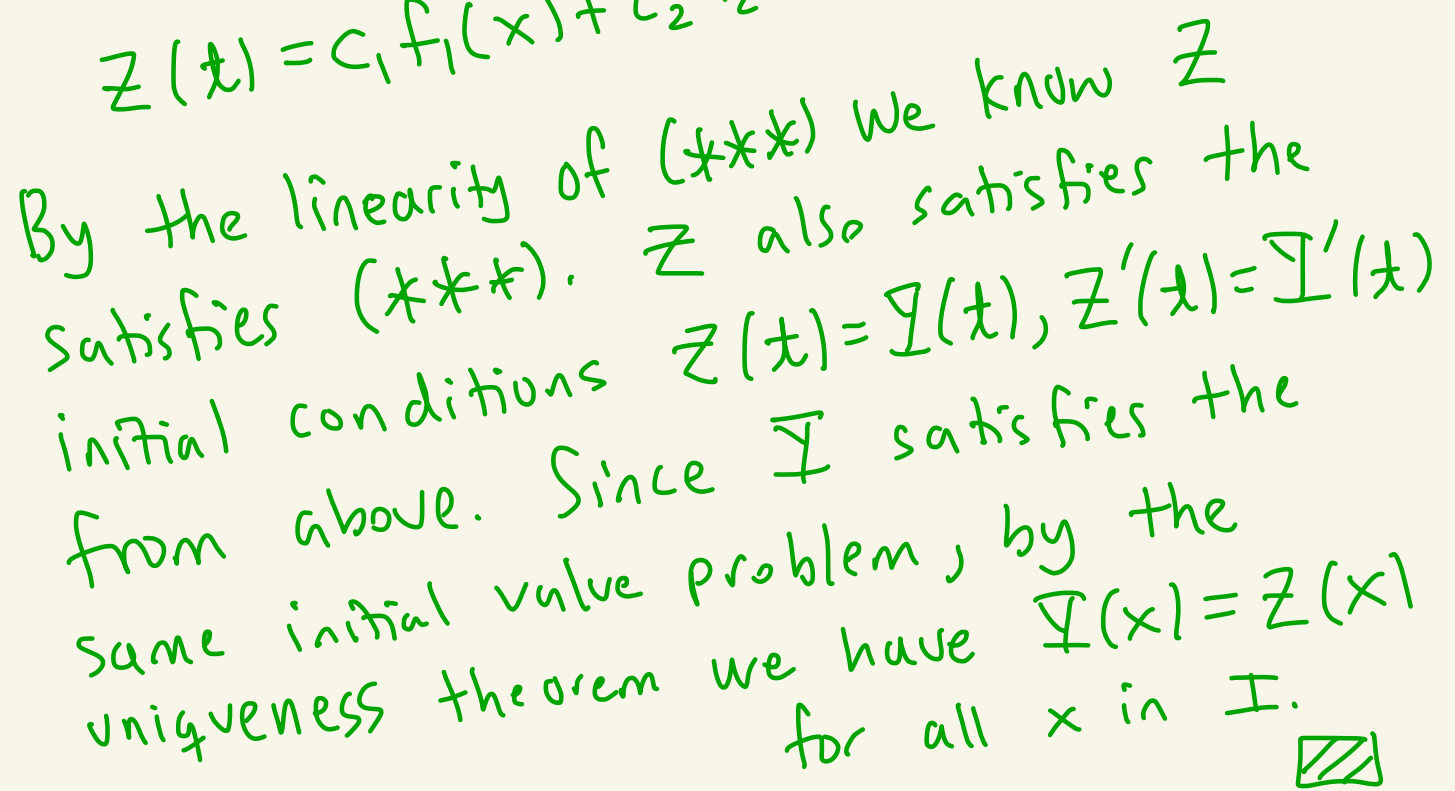 Z(t) = c₁f₁(x) + c₂
By the linearity of (***) we know Z
satisfies (***). Z also satisfies the
initial conditions Z(t) = Y(t), Z'(t) = Y'(t)
from above. Since Y satisfies the
same initial value problem, by the
uniqueness theorem we have Y(x) = Z(x)
for all x in I.